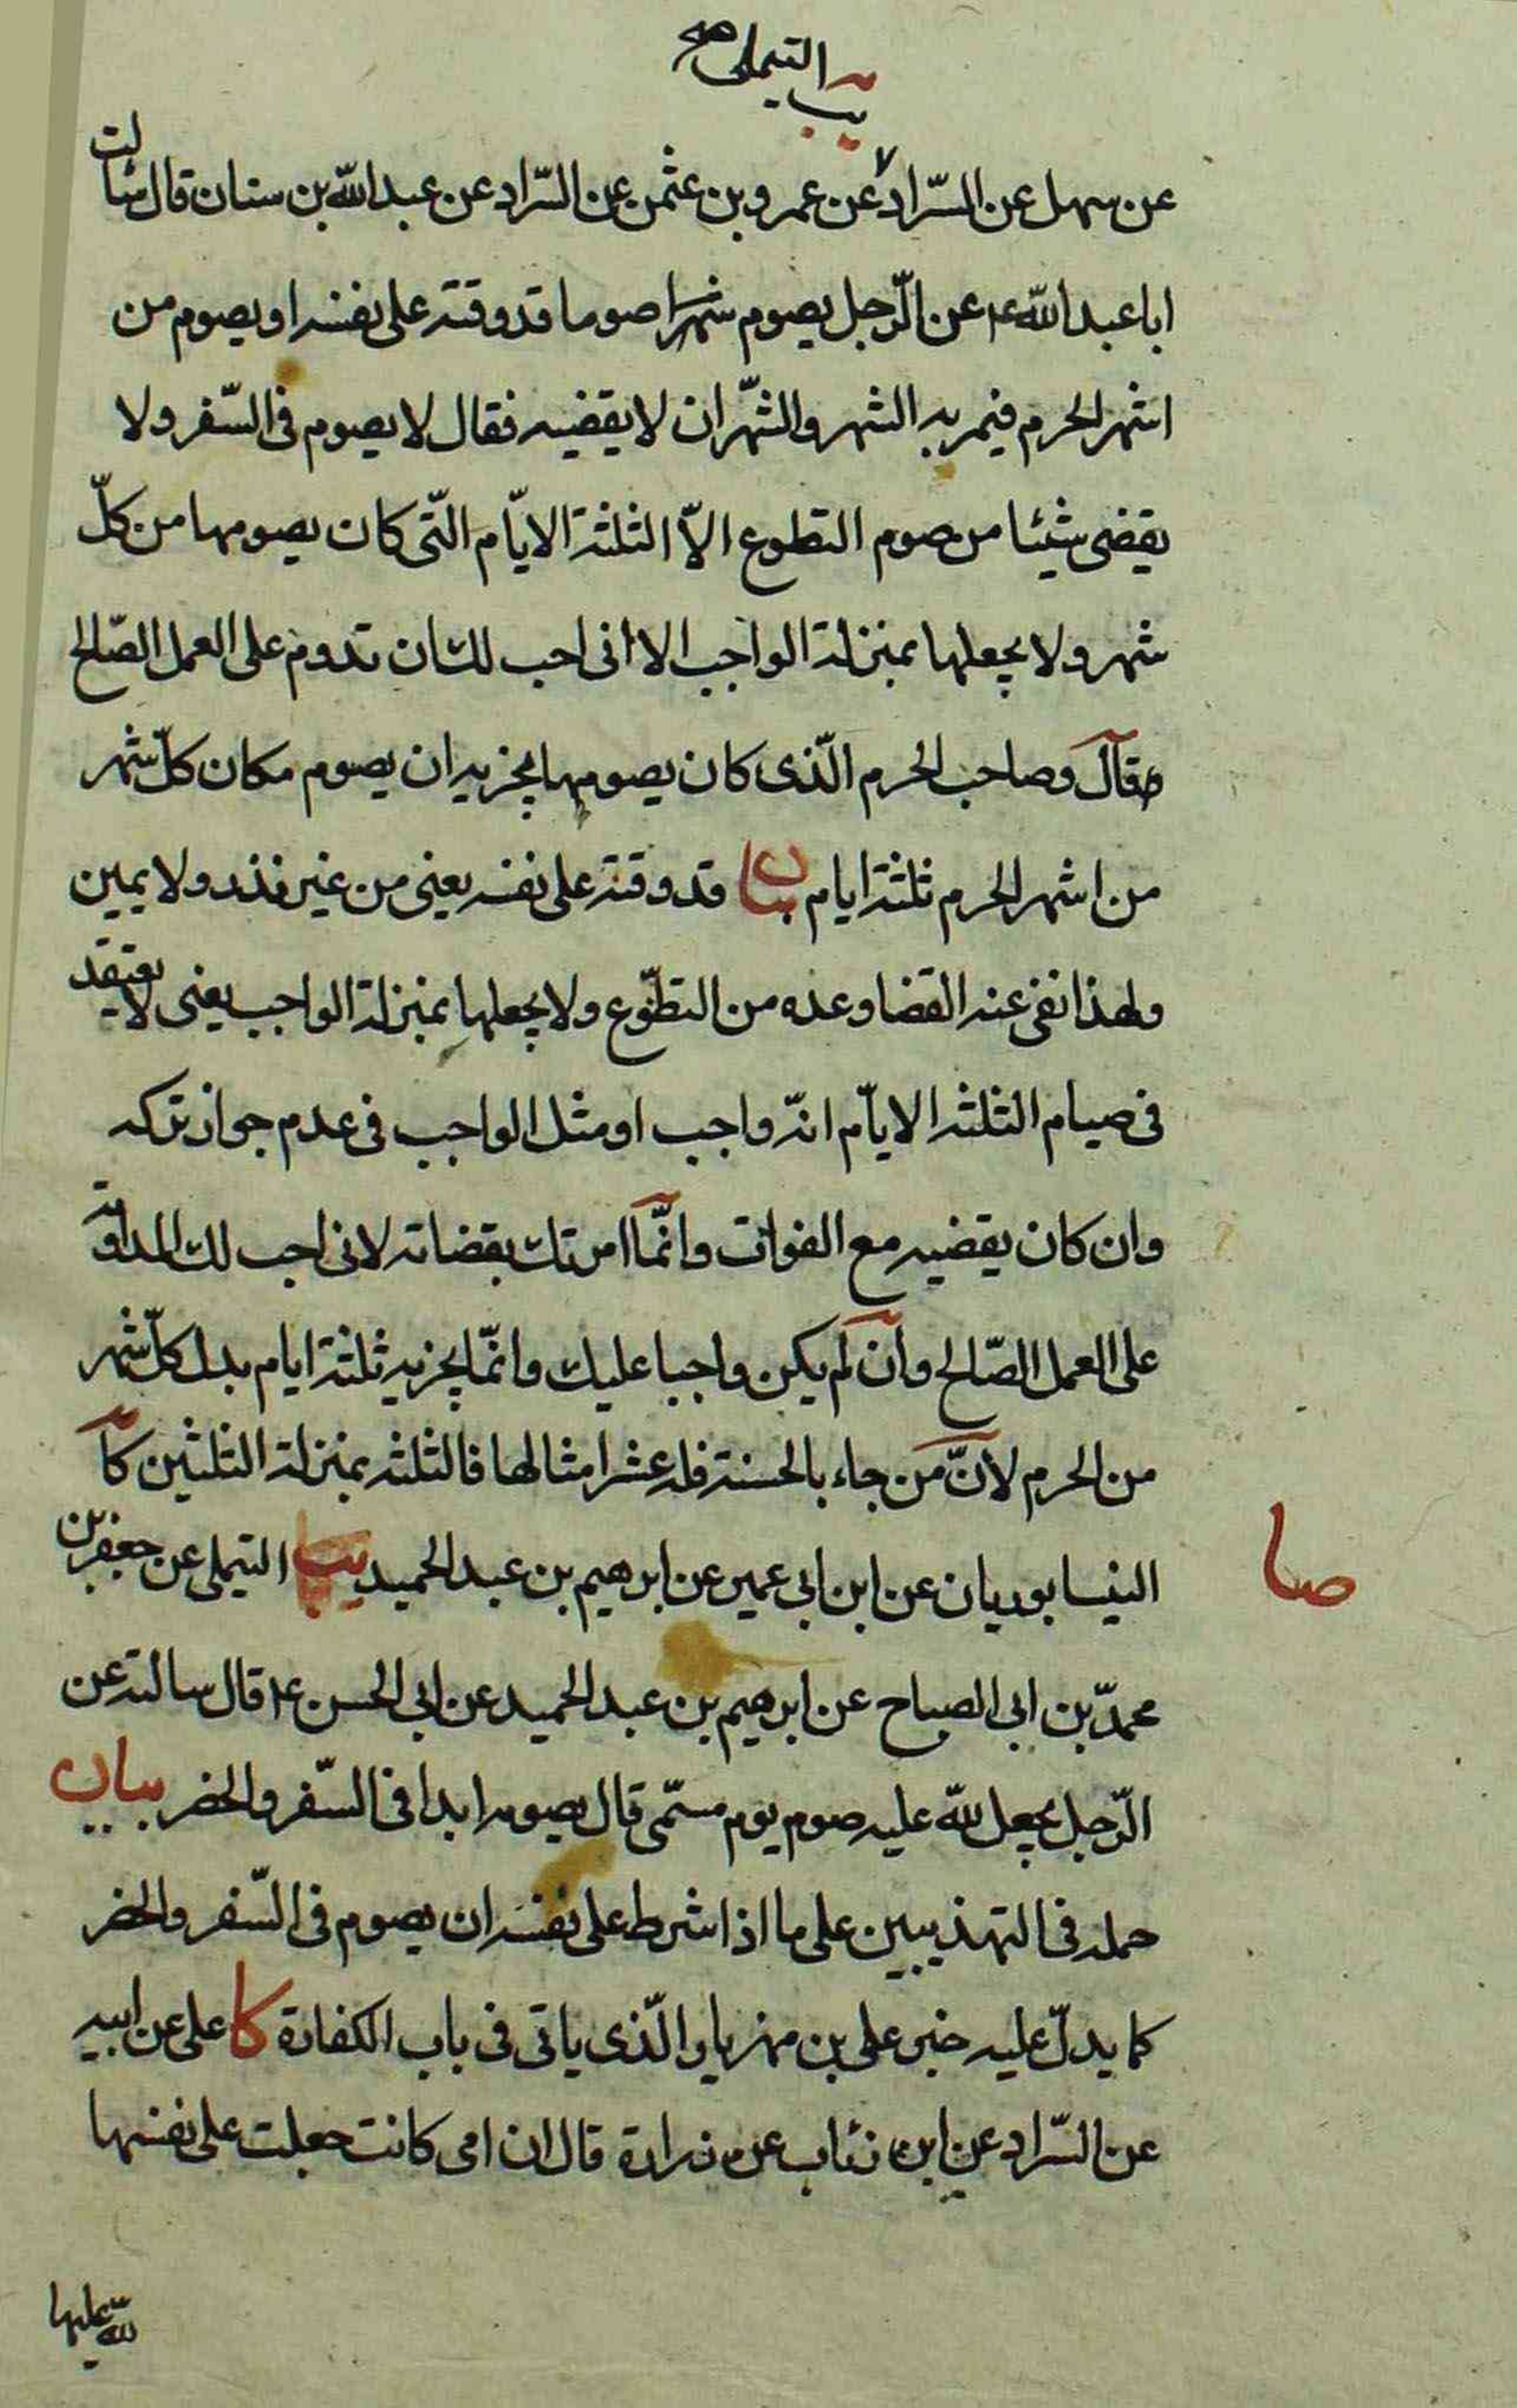 يب التيملى صح
عن سهل عن السّراد عن عمرو بن عثمن عن السّراد عن عبد اللّه بن سنان قال سئالت
ابا عبد اللّه ع عن الرّجل يصوم شهرا صوما قد وقته على نفسه او يصوم من
اشهر الحرم فيمر به الشهر والشّهران لا يقضيه فقال لا يصوم فى السّفر ولا
يقضى شيئا من صوم التطوع الاّ الثلثة الايّام التّى كان يصومها من كلّ
شهر ولا يجعلها بمنزلة الواجب الا انى احب لك ان تدوم على العمل الصّالح
وقال وصاحب الحرم الّذى كان يصومها يجزيه ان يصوم مكان كلّ شهر
من اشهر الحرم ثلثة ايام بيان قد وقته على نفسه يعنى من غير نذر ولا يمين
ولهذا نفى عنه القضا وعده من التطوّع ولا يجعلها بمنزلة الواجب يعنى لا يعتقد
فى صيام الثلثه الايّام انه واجب او مثل الواجب فى عدم جواز تركه
وان كان يقضيه مع الفوات وانّما امرتك بقضائه لانى احب لك المداومة
على العمل الصّالح وان لم يكن واجبا عليك وانّما يجزيه ثلثة ايام بدل كلّ شهر
من الحرم لانّ من جاء بالحسنة فله عشر امثالها فالثلثه بمنزلة الثلثين كا
النيسابوريان عن ابن ابى عمير عن ابرهيم بن عبد الحميد يب التيملى عن جعفر بن
صا
محمدّ بن ابى الصباح عن ابرهيم بن عبد الحميد عن ابى الحسن ع قال سالته عن
الرّجل يجعل للّه عليه صوم يوم مسمّى قال يصومه ابدا فى السّفر والحضر بيان
حمله فى التهذيبين على ما اذا شرط على نفسه ان يصوم فى السّفر والحضر
كما يدلّ عليه خبر على بن مهزيار الّذى ياتى فى باب الكفارة كا على عن ابيه
عن السّراد عن ابن رئاب عن زرارة قال ان امى كانت جعلت على نفسها
للّه عليها